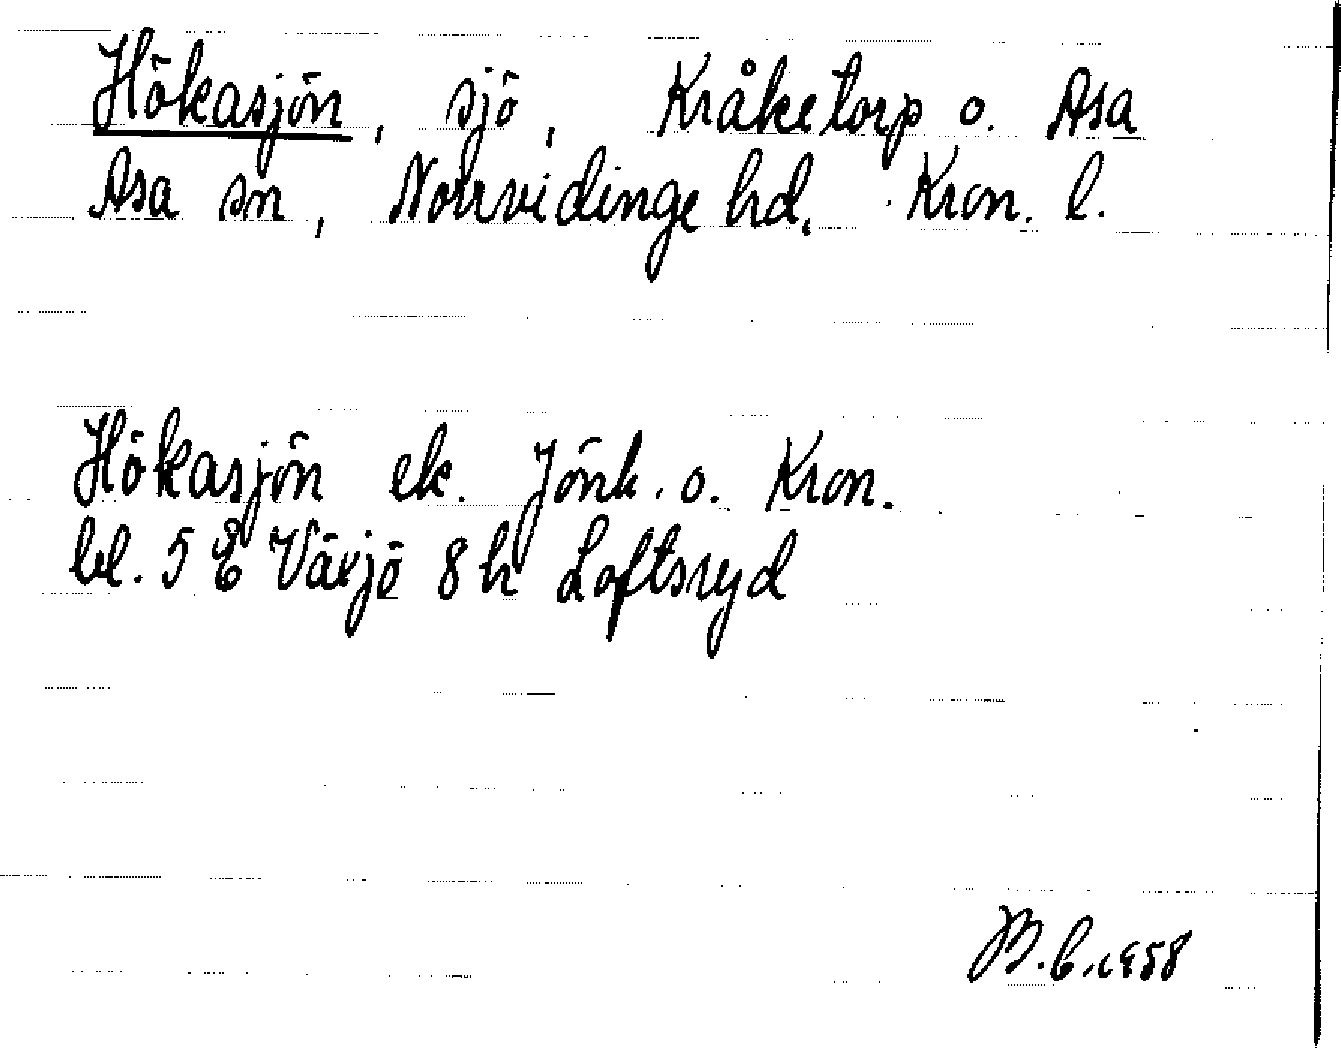 Hökasjön, sjö, Kråketorp o. Asa
Asa sn, Norrvidinge hd. Kron. l.
Hökasjön ek. Jönk. o. Kron.
bl. 5 E Växjö 8 h Loftsryd
1958